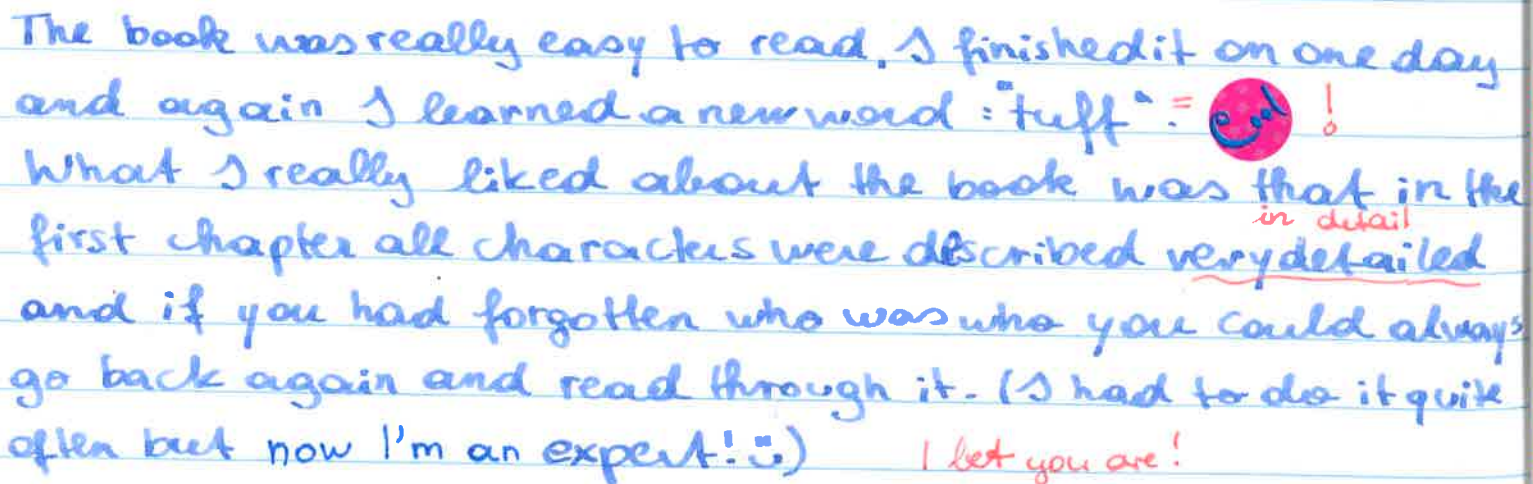 The book was really easy to read. I finished it on one day
and again I learned a new word: "tuff" = Cool !
What I really liked about the book was that in the
in detail
first chapter all characters were described very detailed
and if you had forgotten who was who you could always
go back again and read through it. (I had to do it quite
often but now I'm an expert! :)) I bet you are!